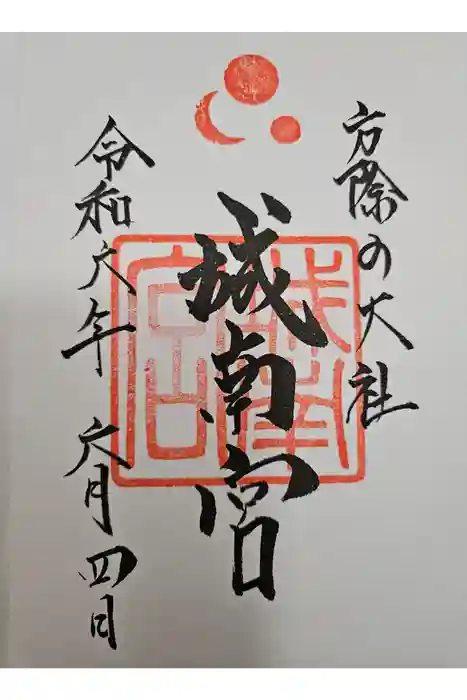 方除の大社
城南宮
令和六年 六月四日
城南宮印